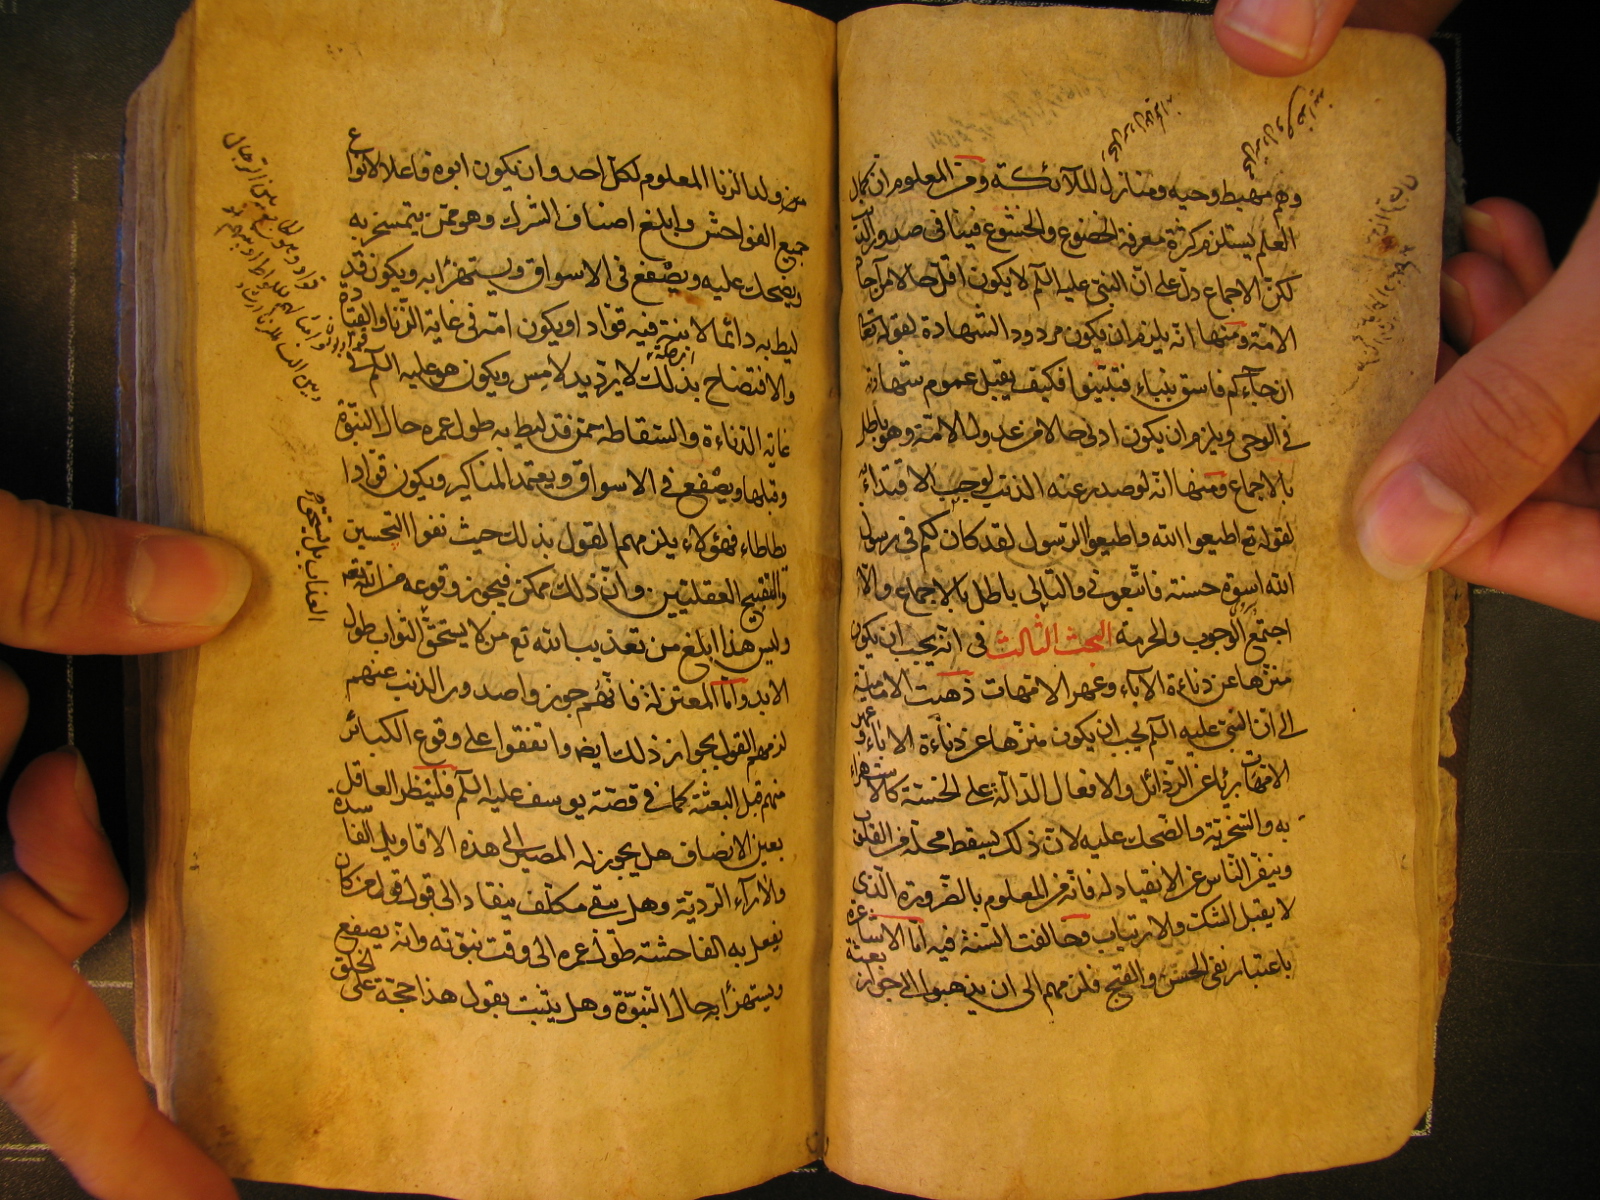 وهم مهبط وحيه ومنازل الملائكة ومن المعلوم ان كمال
العلم يستلزم كثرة معرفة الخضوع والخشوع فينافي صدور الذنب
لكن الاجماع دل على ان النبي عليه السلم لا يكون اقل حالا من آحاد
الامة ومنها انه يلزم ان يكون مردود الشهادة لقوله تعا
ان جاءكم فاسق بنباء فتبينوا فكيف يقبل عموم شهادته
في الوحي ويلزم ان يكون ادنى حالا من عدول الامة وهو باطل
بالاجماع ومنها انه لو صدر عنه الذنب لوجب الاقتداء
لقوله تع اطيعوا الله واطيعوا الرسول لقد كان لكم في رسول
الله اسوة حسنة فاتبعوني والتالي باطل بالاجماع والا
اجتمع الوجوب والحرمة البحث الثالث في انه يجب ان يكون
منزها عن دناءة الآباء وعهر الامهات ذهبت الامامية
الى ان النبي عليه السلم يجب ان يكون منزها عن دناءة الاباء وعهر
الامهات بريئا عن الرذائل والافعال الدالة على الخسة كالاستهزاء
به والسخرية والضحك عليه لان ذلك يسقط محله من القلوب
وينفر الناس عن الانقياد له فانه من المعلوم بالضرورة الذي
لا يقبل الشك والارتياب وخالفت السنة فيه اما الاشاعرة
باعتبار نفي الحسن والقبح فلزمهم الى ان يذهبوا الى جواز بعثة
من ولد الزنا المعلوم لكل احد وان يكون ابوه فاعلا لانواع
جميع الفواحش وابلغ اصناف الشرك وهو ممن يتمسخر به
ويضحك عليه ويصفع في الاسواق ويستهزأ به ويكون قد
ليط به دائما لابنة فيه قوادا ويكون امه في غاية الزنا والقيادة
والافتضاح بذلك لا يرد يد لامس ويكون هو عليه السلم في
غاية الدناءة والسقاطة ممن قد ليط به طول عمره حال النبوة
وقبلها ويصفع في الاسواق ويعتمد المناكير ويكون قوادا
بطاطاء فهؤلاء يلزمهم القول بذلك حيث نفوا التحسين
والتقبيح العقليين وان ذلك ممكن فيجوز وقوعه من الله تع
وليس هذا ابلغ من تعذيب الله تع من لا يستحق الثواب طول
الابد واما المعتزلة فانهم جوزوا صدور الذنب عنهم
لزمهم القول بجواز ذلك ايض واتفقوا على وقوع الكبائر
منهم قبل البعثة كما في قصة يوسف عليه السلم فلينظر العاقل
بعين الانصاف هل يجوز له المصير الى هذه الاقاويل الفاسدة
والاراء الردية وهل يبقى مكلف ينقاد الى قبول قول من كان
يفعل به الفاحشة طول عمره الى وقت نبوته وانه يصفع
ويستهزأ به حال النبوة وهل يثبت بقول هذا حجة على الخلق
العذاب بل يستحق